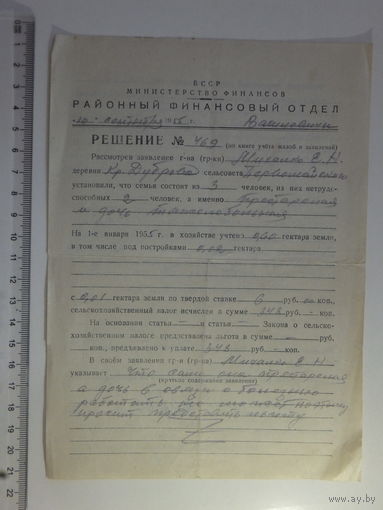 БССР
МИНИСТЕРСТВО ФИНАНСОВ
РАЙОННЫЙ ФИНАНСОВЫЙ ОТДЕЛ
"10" сентября 1955 г.
РЕШЕНИЕ № 469 (по книге учёта жалоб и заявлений)
Рассмотрев заявление г-на (гр-ки) Михалко Е. Н.
деревни Кр. Дуброва сельсовета Первомайского
установили, что семья состоит из 3 человек, из них нетрудо-
способных 2 человек, а именно престарелая
и дочь
На 1-е января 1955 г. в хозяйстве учтено 0,60 гектара земли,
в том числе под постройками 0,02 гектара
с 0,01 гектара земли по твердой ставке 6 руб. — коп.,
сельскохозяйственный налог исчислен в сумме 348 руб. - коп.
На основании статьи — и статьи — Закона о сельско-
хозяйственном налоге предоставлена льгота в сумме — руб.
— коп., предъявлено к уплате 348 руб. - коп.
В своём заявлении гр-н (гр-ка) Михалко Е. Н
указывает Что сама она престарелая
(краткое содержание заявления)
а дочь в
работать не может
просит предоставить льготу
0 1 2 3 4 5 6 7 8 9 10 11 12 13 14 15 16 17 18 19 20 21 22
www.ay.by